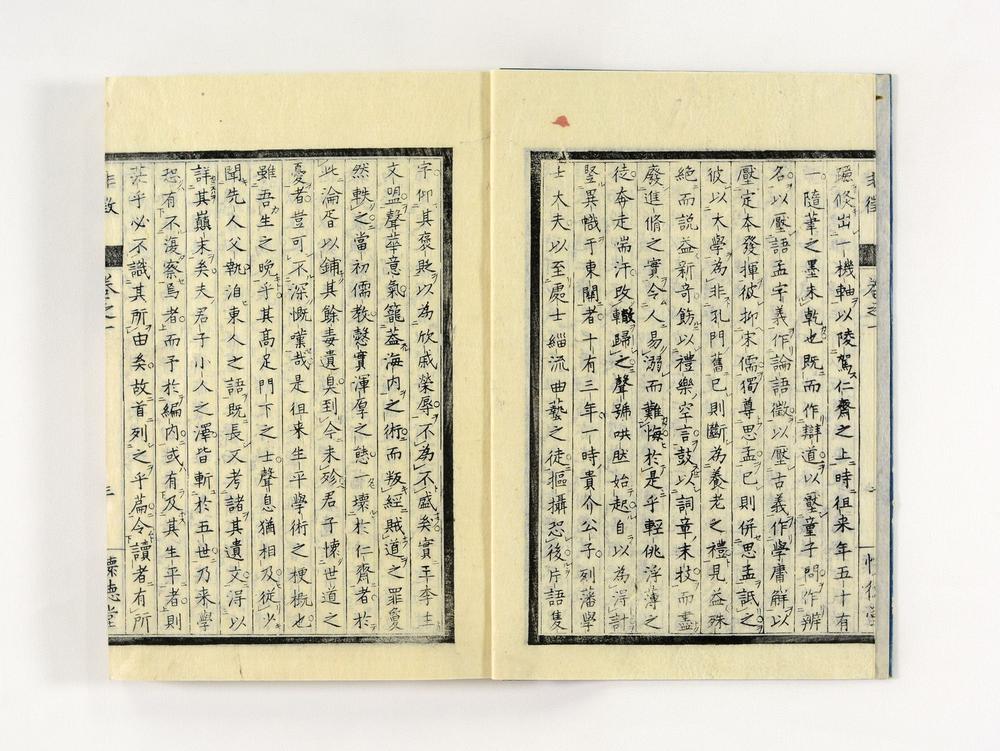 隱倐出一機軸以陵駕仁齋之上時徂来年五十有
一隨筆之墨未乾也既而作辯道以壓童子問作辨
名以壓語孟字義作論語徵以壓古義作學庸解以
壓定本發揮彼抑宋儒獨尊思孟已則併思孟詆之
彼以大學為非孔門舊已則斷為養老之禮見益殊
絶而説益新奇飾以禮樂空言鼓以詞章末技而盡
廢進脩之實令人易溺而難悔於是乎輕佻浮薄之
徒奔走喘汗改轍歸之聲號哄然始起自以為得計
堅異幟于東關者十有三年一時貴介公子列藩學
士大夫以至處士緇流曲藝之徒摳攝恐後片語隻
字仰其褒貶以為欣戚榮辱不為不盛矣實王李主
文盟聲華意氣籠蓋海内之術而叛經賊道之罪敻
然軼之當初儒教愨實渾厚之態一壞於仁齋者於
此淪胥以鋪其餘毒遺臭到今未殄君子懐世道之
憂者豈可不深慨嘆哉是徂来生平學術之梗概也
雖吾生之晩乎其高足門下之士聲息猶相及従少
聞先人父執洎東人之語既長又考諸其遺文得以
詳其巔末矣夫君子小人之澤皆斬於五世乃来學
恐有不復察焉者而予於編内或有及其生平者則
非乎必不識其所由矣故首列之乎篇令讀者有所
非徵
卷之一
懐德堂